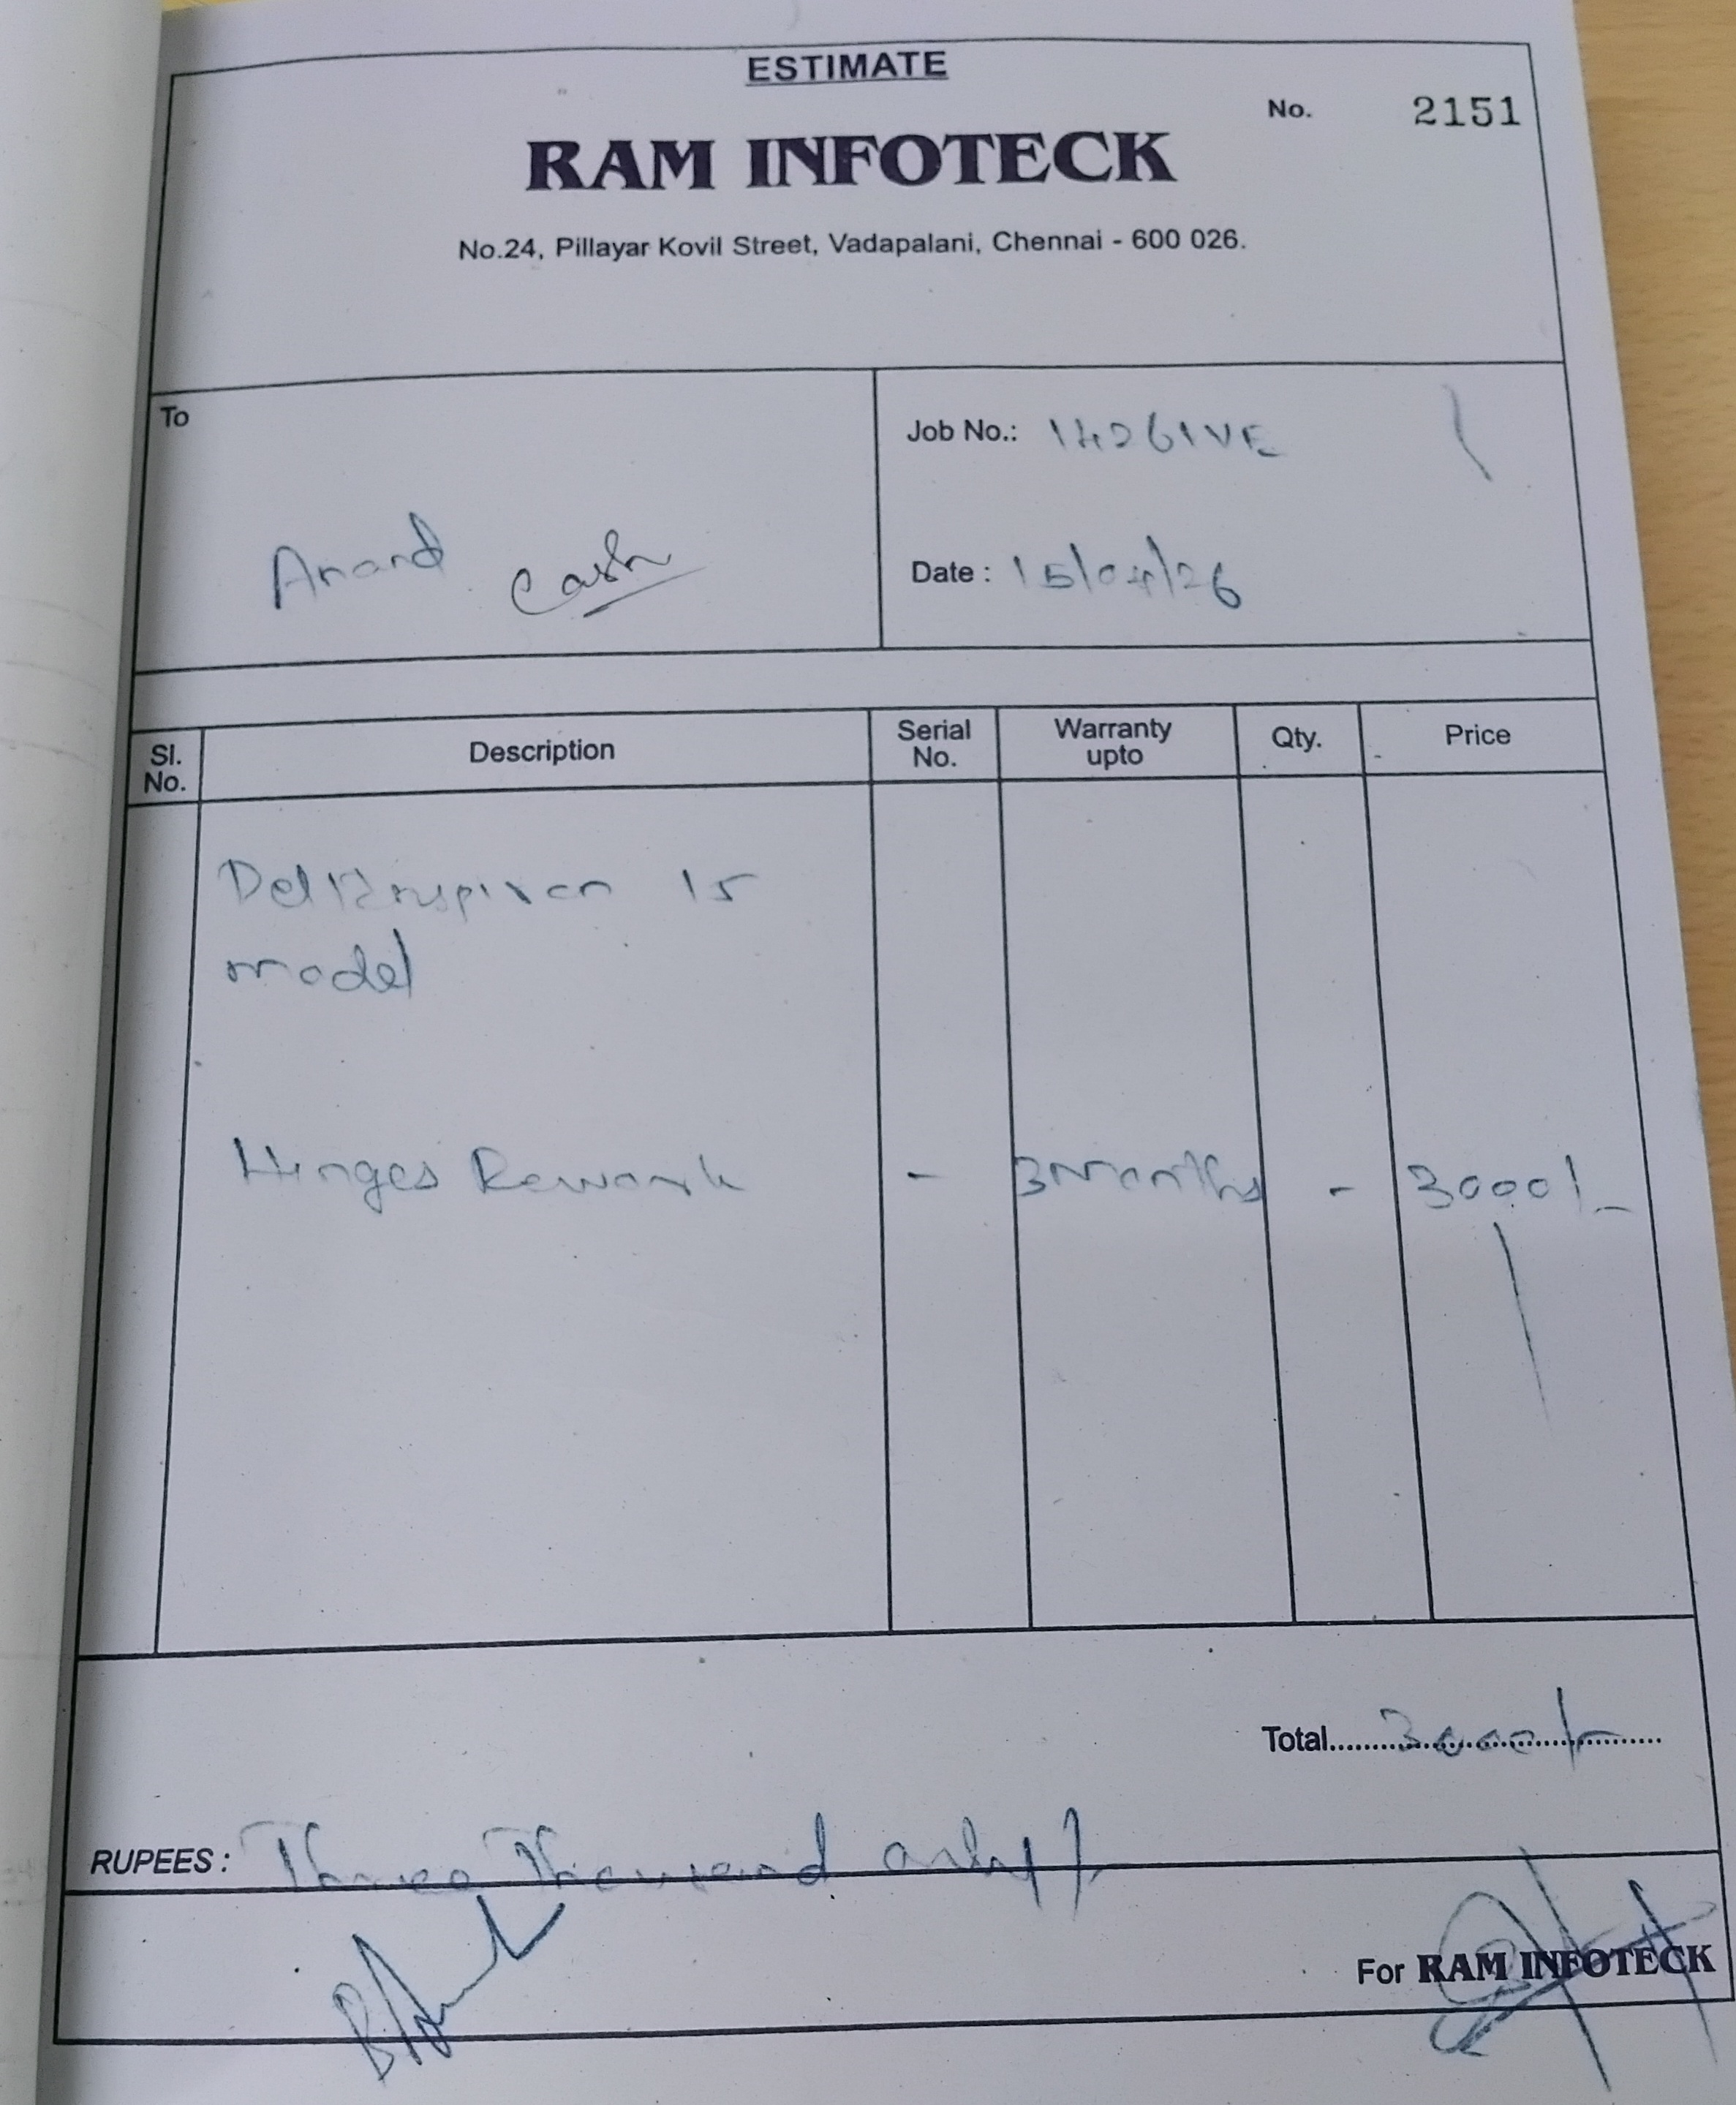 ESTIMATE
No. 2151
RAM INFOTECK
No.24, Pillayar Kovil Street, Vadapalani, Chennai - 600 026.
To
Anand Cash
Job No.: 14261VE
Date : 15/04/26
Sl. No. Description Serial No. Warranty upto Qty. Price
Dell Inspiron 15
model
Hinges Rework - 3 months - 3000/-
Total 3000/-
RUPEES : Three Thousand only/-
For RAM INFOTECK